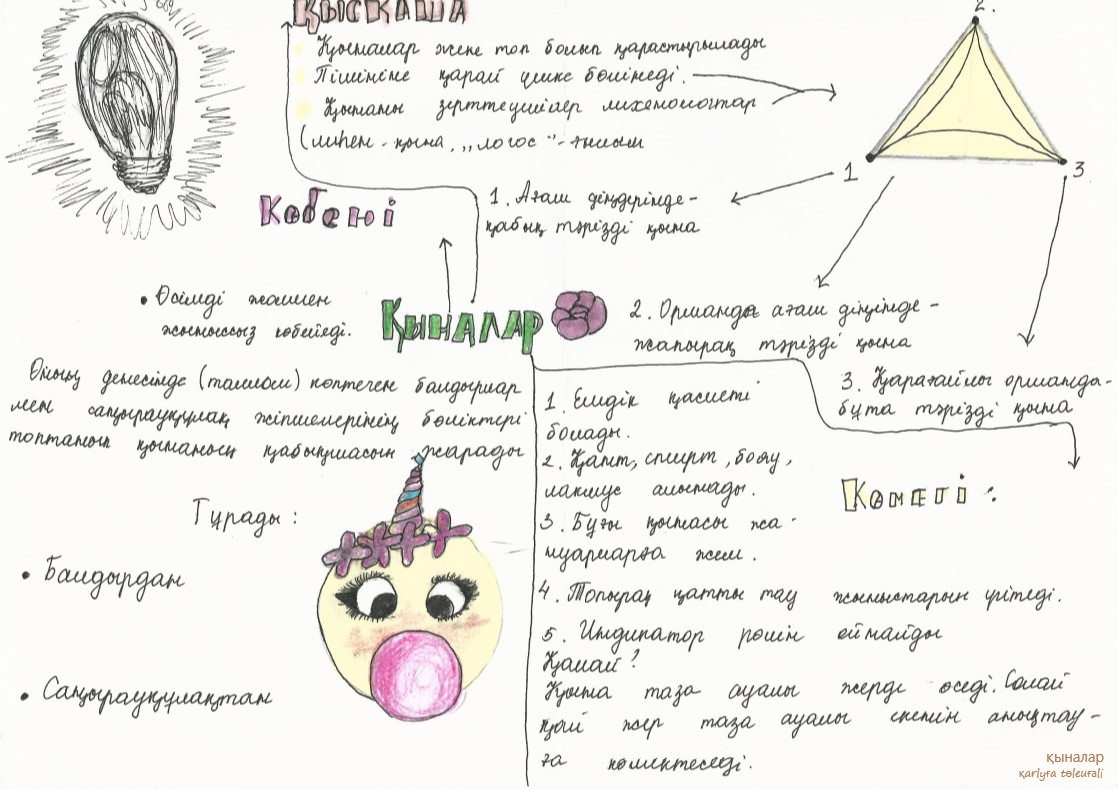 ҚЫСҚАША
Қыналар жеке топ болып қарастырылады
Пішініне қарай үшке бөлінеді.
Қынаны зерттеушілер лихенологтар
(лихен - қына, ,,логос"- ғылым
2.
1
3
1. Ағаш діңдерінде-
қабық тәрізді қына
Көбеюі
• Өсімді жолмен
жыныссыз көбейеді.
ҚЫНАЛАР
2. Орманда ағаш діңінде -
жапырақ тәрізді қына
3. Қарағайлы орманда-
бұта тәрізді қына
Оның денесінде (таллом) көптеген балдырлар
мен саңырауқұлақ жіпшелерінің бөліктері
топтанып қынаның қабықшасын жарады
Тұрады :
• Балдырдан
• Саңырауқұлақтан
Көмегі :
1. Емдік қасиеті
болады.
2. Қант, спирт, бояу,
лакмус алынады.
3. Бұғы қынасы жа-
нуарларға жем.
4. Топырақ қатты тау жыныстарын үгітеді.
5. Индикатор рөлін ойнайды
Қалай?
Қына таза ауалы жерде өседі. Солай
қай жер таза ауалы екенін анықтау-
ға көмектеседі.
қыналар
қarlyға төleuғali